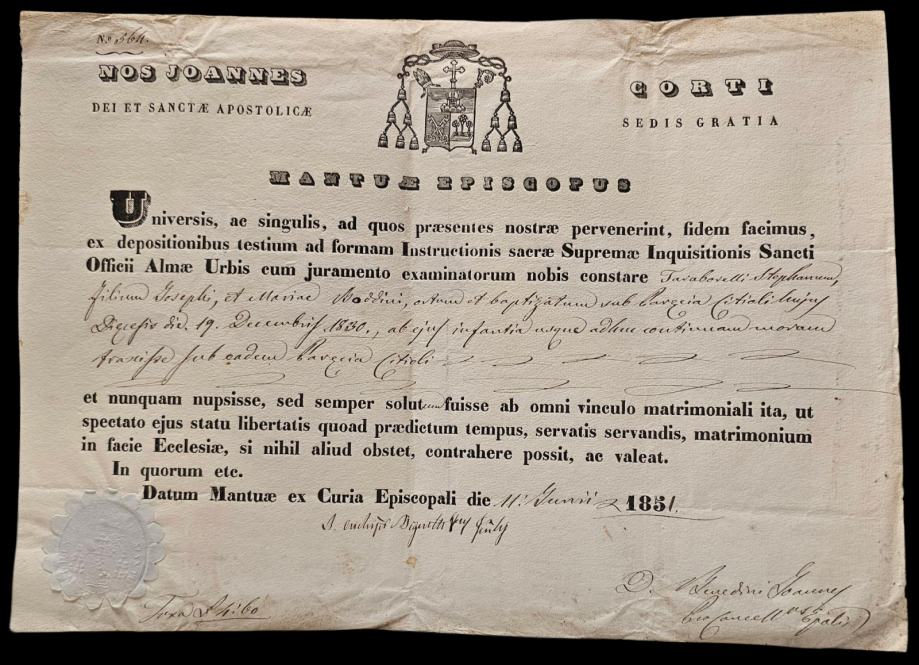 N.o 564.
NOS JOANNES CORTI
DEI ET SANCTÆ APOSTOLICÆ SEDIS GRATIA
MANTUÆ EPISCOPUS
Universis, ac singulis, ad quos præsentes nostræ pervenerint, fidem facimus,
ex depositionibus testium ad formam Instructionis sacræ Supremæ Inquisitionis Sancti
Officii Almæ Urbis cum juramento examinatorum nobis constare Taraboselli Stephanum,
filium Josephi, et Mariae Boddini, ortum et baptizatum sub Parœcia Citioli hujus
Diœcesis die 19. Decembris 1830., ab ejus infantia usque adhuc continuam moram
traxisse sub eadem Parœcia Citioli
et nunquam nupsisse, sed semper solutum fuisse ab omni vinculo matrimoniali ita, ut
spectato ejus statu libertatis quoad prædictum tempus, servatis servandis, matrimonium
in facie Ecclesiæ, si nihil aliud obstet, contrahere possit, ac valeat.
In quorum etc.
Datum Mantuæ ex Curia Episcopali die 11. Junii 1851.
Taxa
D. Benedini Joannes